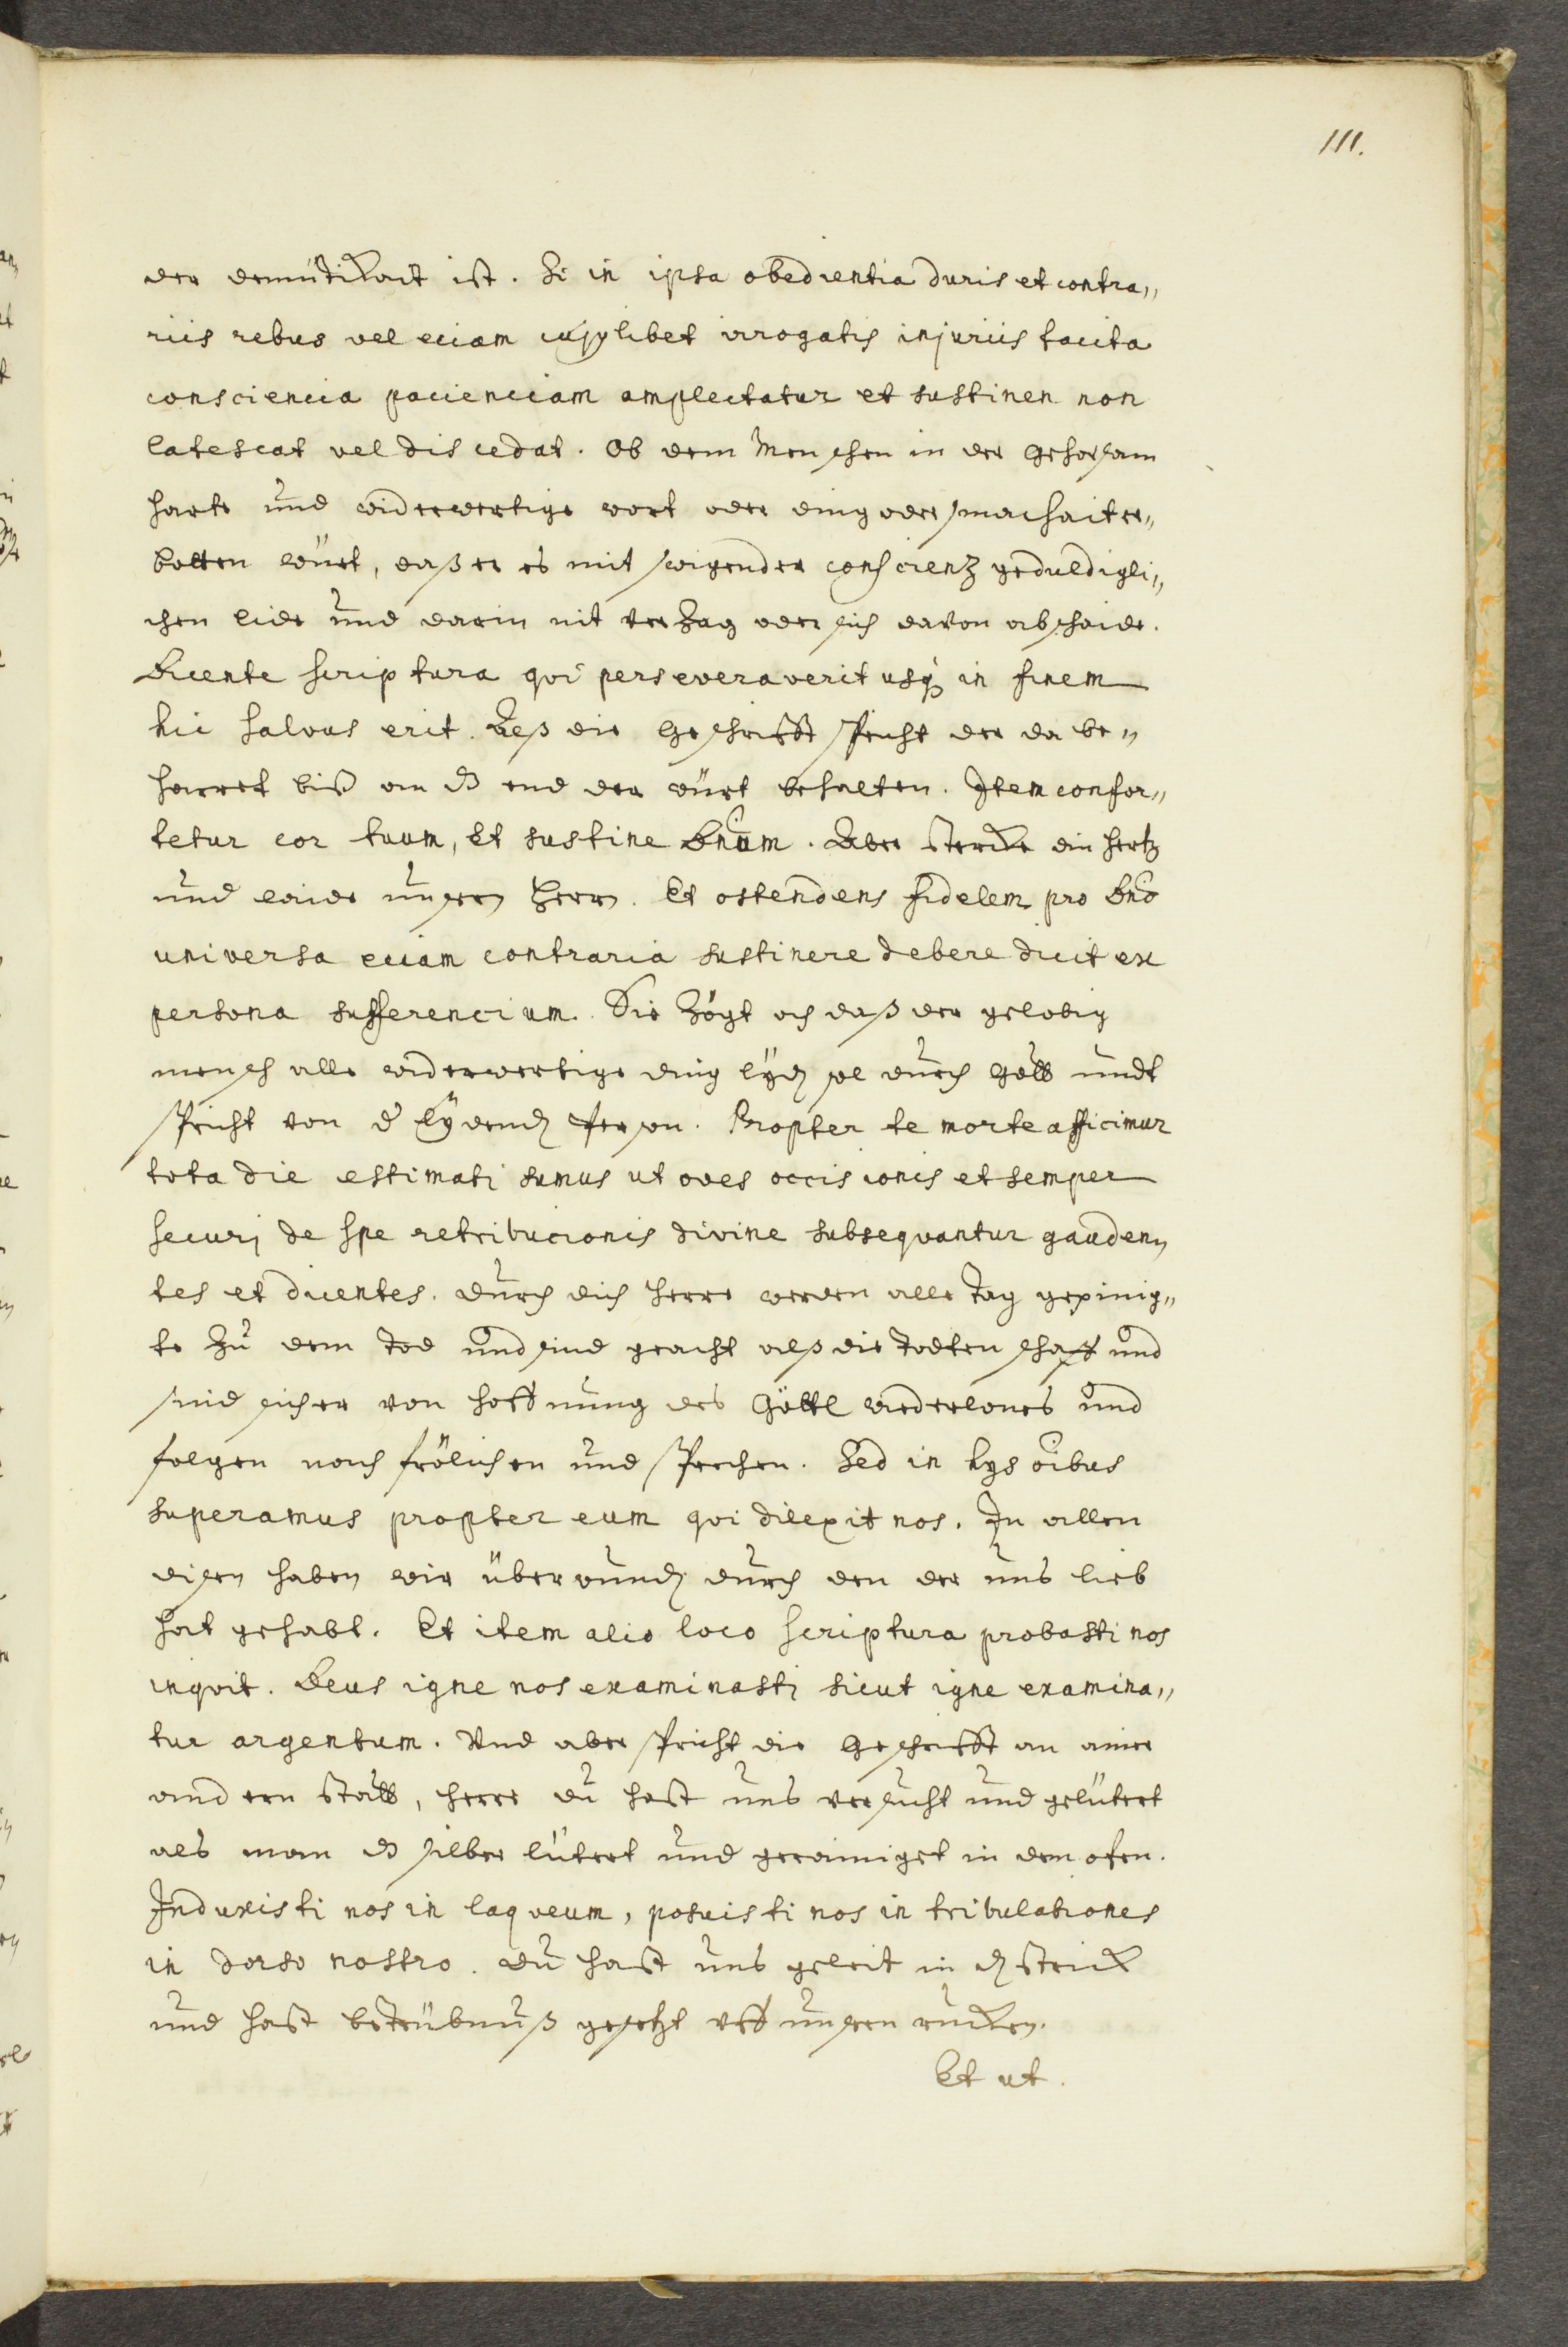 111.
der demüttikait ist. Si in ipsa obedientia duris et contra„
riis rebus vel eciam cujuslibet irrogatis injuriis tacita
consciencia pacienciam amplectatur et sustinen non
latescat vel discedat. Ob dem Menschen in der gehorsam
harte und widerwertige wort oder ding oder smachait er„
botten würt, daß er es mit swigender conscienz geduldigli„
chen lide und darin nit verzag oder sich davon abschaide.
Dicente scriptura qvi perseveraverit usq in finem
hic salvus erit. Deß die geschrifft spricht der da be„
harret biß an dz end der würt behalten. Item confor„
tetur cor tuum, et sustine Dnum. Aber stercke din hertz
und leide unsern Herrn. Et ostendens fidelem pro Dno
universa eciam contraria sustinere debere dicit ex
persona sufferencium. Sie zögt och daß der gelobig
mensch alle widerwertige ding lyden sol durch Gott undt
spricht von der lydenden person. Propter te morte afficimur
tota die estimati sumus ut oves occisionis et semper
securi de spe retribucionis divine subseqvantur gauden„
tes et dicentes. durch dich herre werden alle tag gepinig„
te zu dem tod und sind geacht alß die todten schaff und
sind sicher von hoffnung des Göttl widerlones und
folgen noch frölichen und sprechen. Sed in hys oibus
superamus propter eum qvi dilexit nos. In allen
disen haben wir überwunden durch den der uns lieb
hat gehabt. Et item alio loco scriptura probasti nos
inqvit. Deus igne nos examinasti sicut igne examina„
tur argentum. Und aber spricht die geschrifft an ainer
andern statt, herre du hast uns versucht und gelütert
als man dz silber lütert und gerainiget in dem ofen.
Induxisti nos in laqveum, posuisti nos in tribulationes
in dorso nostro. du hast uns geleit in den strick
und hast betrübnuß gesetzt uff unsern rucken.
Et ut.